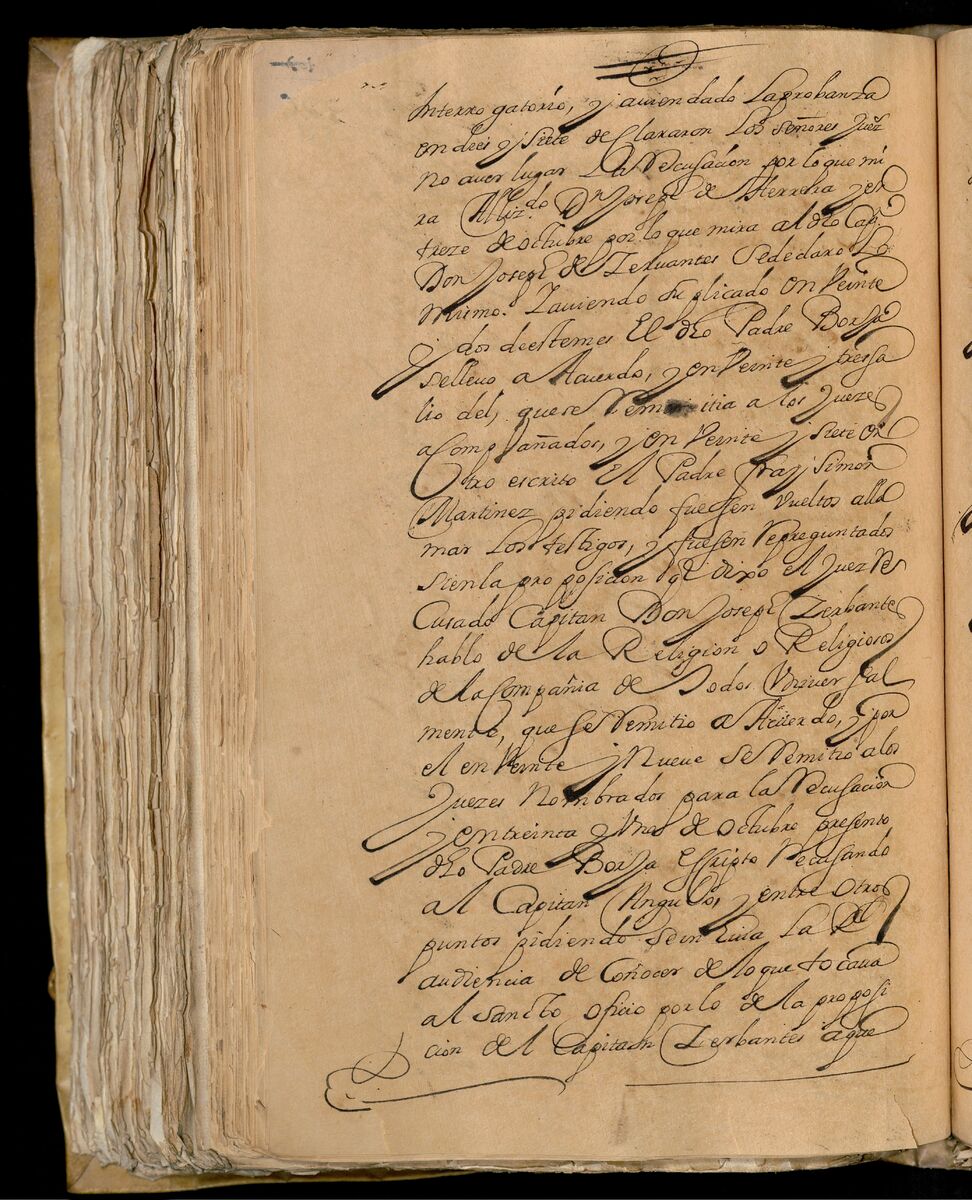 Interrogatorio, y auiendado Laprobanza
en dies y siete de Clararon Los señores Juezs
no auer lugar La Recusacion por lo que mi
ra Al lizdo Dn Joseph de Herrera y en
treze de octubre por lo que mira al dho Capn
Don Joseph de Zeruantes Sedeclaro Lo
mismo. Zauiendo suplicado en Veinte
y dos deestemes El dho Padre Borja
selleuo a Acuerdo, y en Veinte y tressa
lio del, quese Remitia a los Juezes
acompañados, y en Veinte y siete en
Otro escrito El Padre fray Simon
Martinez pidiendo fuessen Vueltos alla
mar Los testigos, y fuesen Repreguntados
sienla proposicion qe dixo el Juez Re
Cusado Capitan Don Joseph Zerbantes
hablo de la Religion o Religiosos
de la Compañia de Todos Vniuersal
mente, que se Remitio a Acuerdo, y por
el en Veinte y Nueue se Remitio alos
Juezes Nombrados para la Recusacion
y entreinta y Vno de octubre presento
dho Padre Borja Escripto Recusando
al Capitan Angulo, y entre otros
puntos pidiendo seinhiua La Rl
audiencia de Coñocer de loque tocaua
al sancto oficio por lo de la proposi
cion del Capitan Zerbantes aque